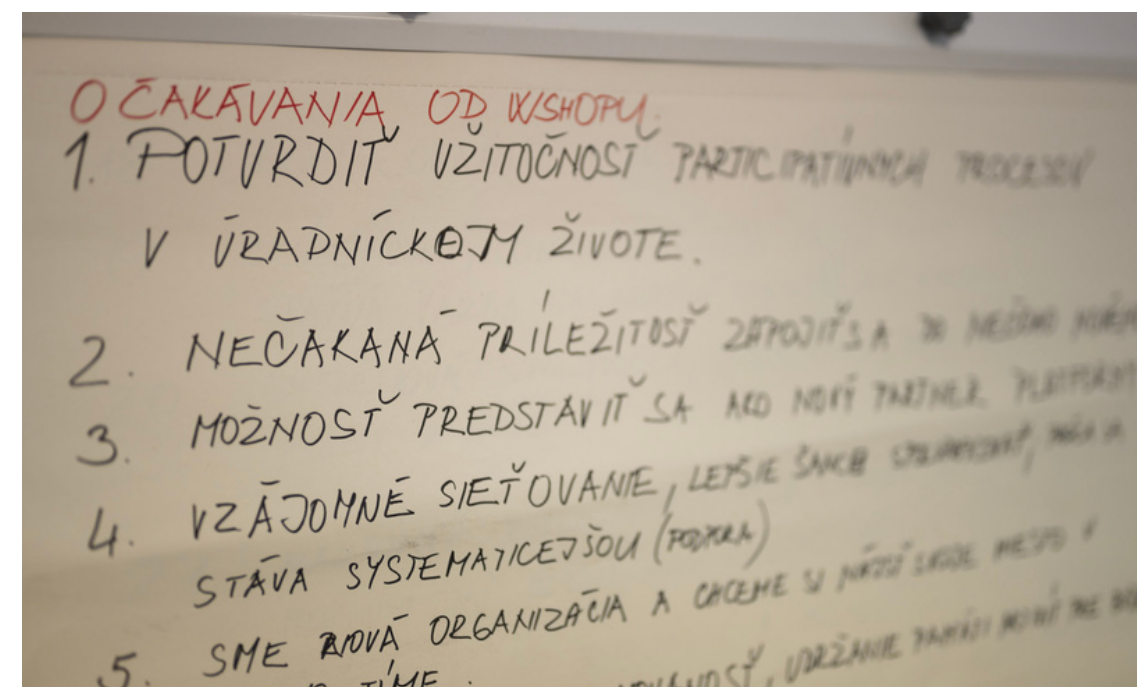 OČAKÁVANIA OD WSHOPU.
1. POTVRDIŤ UŽITOČNOSŤ PARTICIPATÍVNYCH PROCESOV
V ÚRADNÍCKOM ŽIVOTE.
2. NEČAKANÁ PRÍLEŽITOSŤ ZAPOJIŤ SA DO NEČOHO
3. MOŽNOSŤ PREDSTAVIŤ SA AKO NOVÝ PARTNER PLATFORMY
4. VZÁJOMNÉ SIEŤOVANIE, LEPŠIE
STÁVA SYSTEMATICEJŠOU (PODPORA)
5. SME NOVÁ ORGANIZÁCIA A CHCEME SI NÁJSŤ SVOJE MESTO V
TÍME.
UDRŽANIE